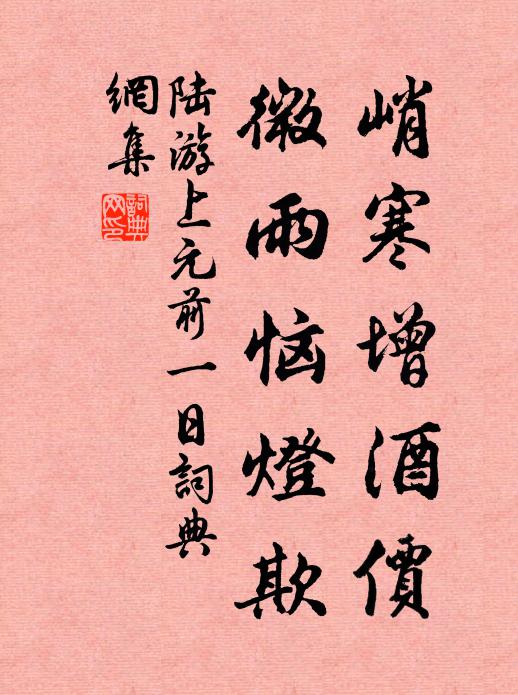 峭寒增酒價
微雨惱燈欺
陆游上元前一日詞典
網集
詞典
网印